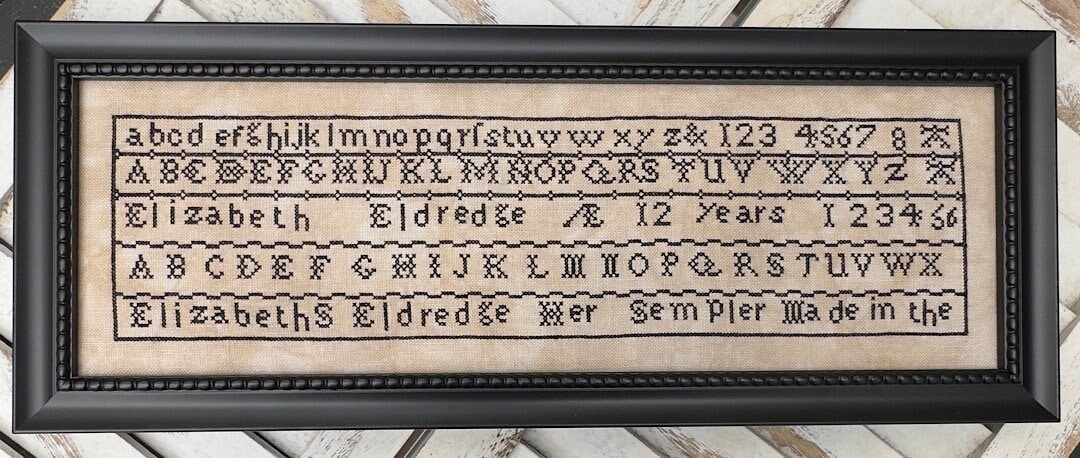 a b c d e f g h i j k l m n o p q r ſ s t u v w x y z & 1 2 3 4 5 6 7 8 Æ
A B C D E F G H I J K L M N O P Q R S T U V W X Y Z Æ
Elizabeth Eldredge Æ 12 years 1 2 3 4 5 6
A B C D E F G H I J K L M N O P Q R S T U V W X
ElizabethS Eldredge Her Sempler Made in the